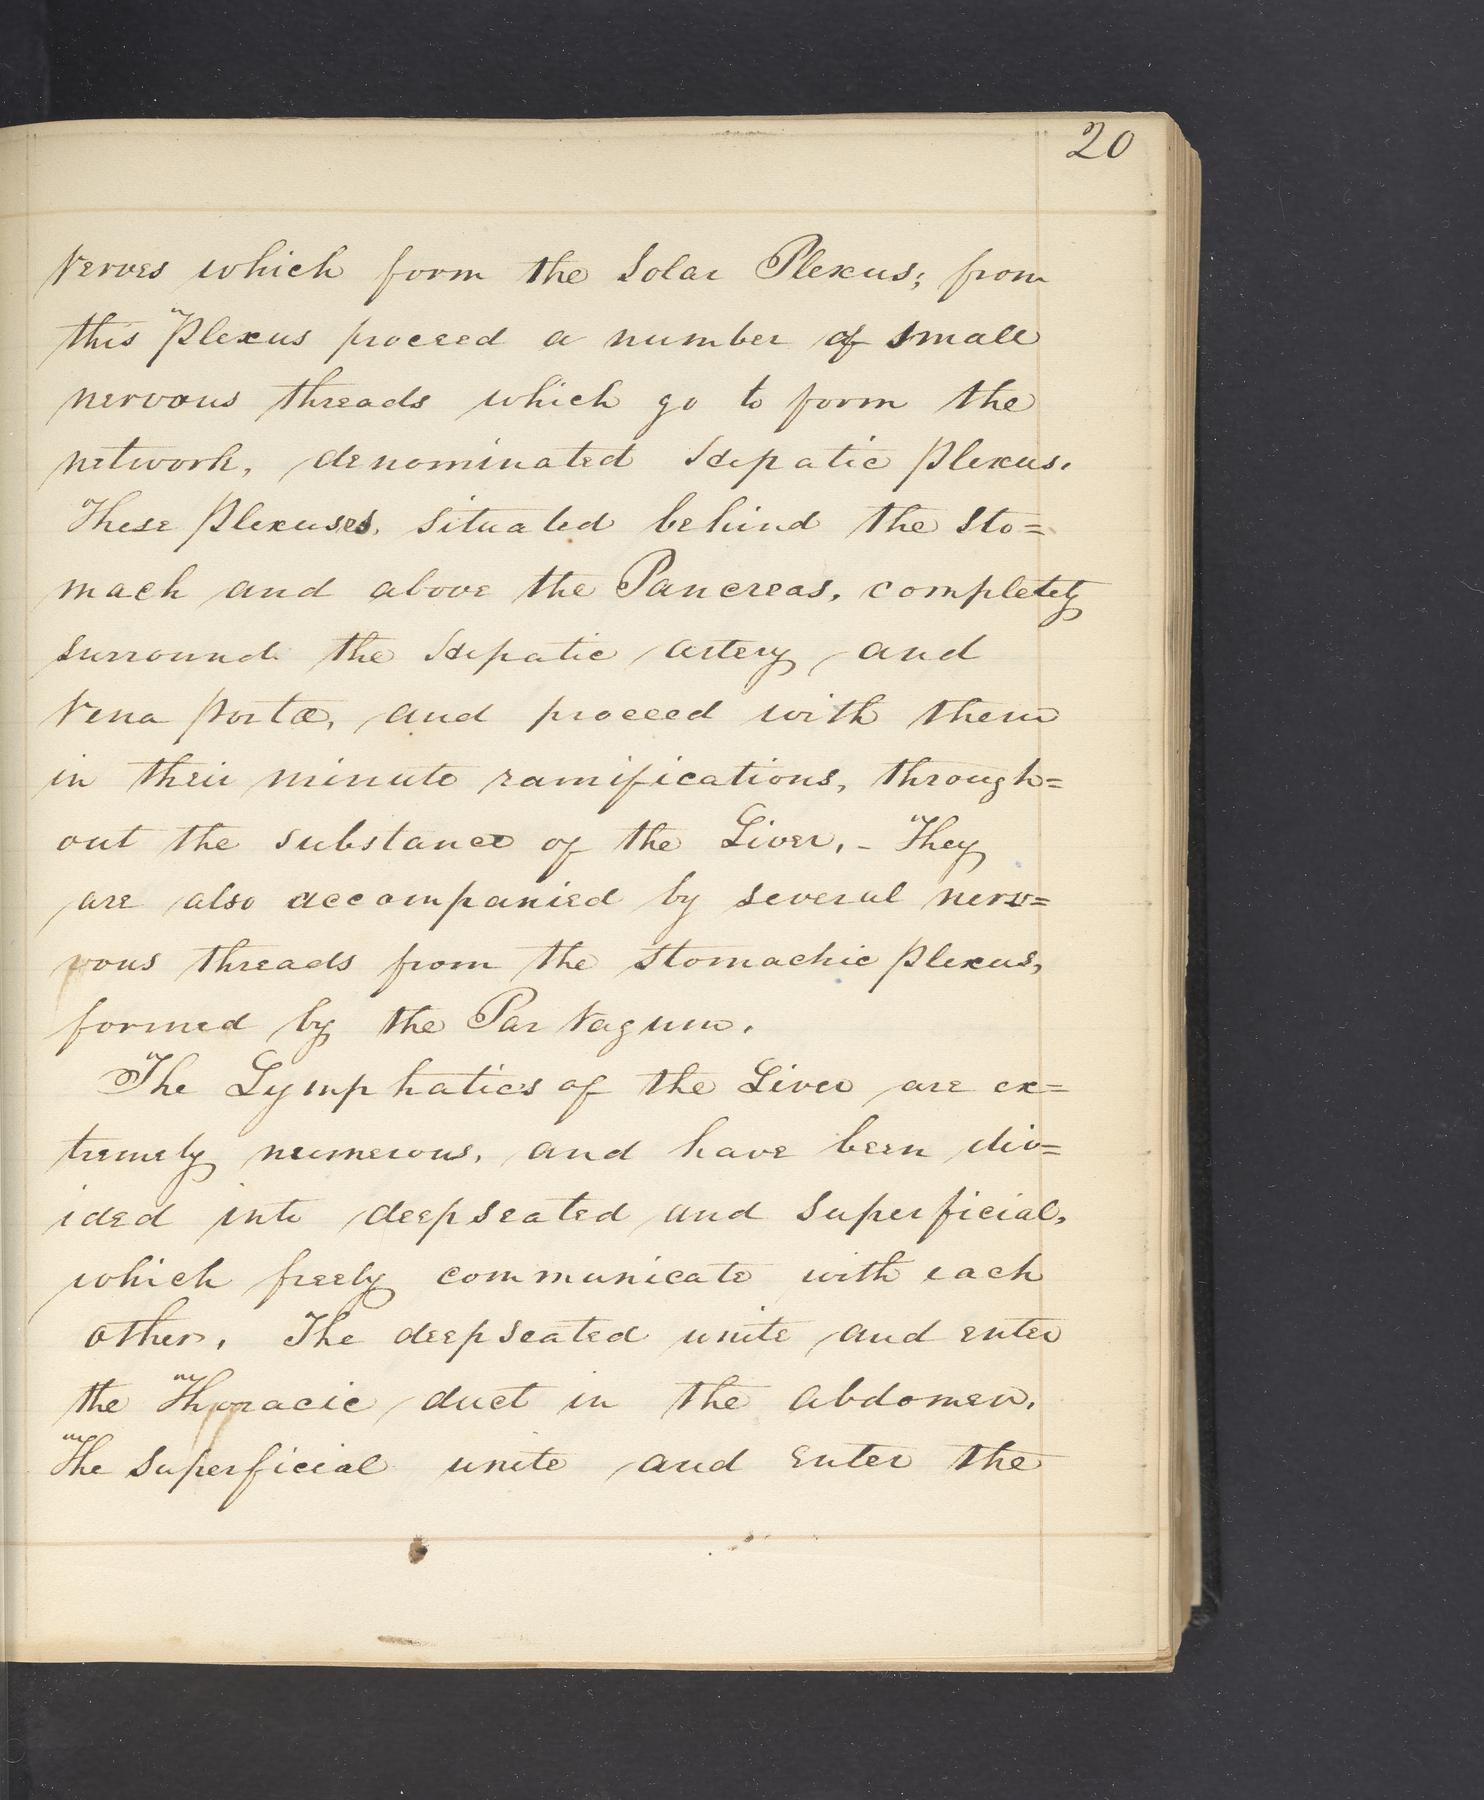 20
Nerves which form the Solar Plexus; from
this Plexus proceed a number of small
nervous threads which go to form the
network, denominated Hepatic Plexus.
These Plexuses, situated behind the Sto=
mach and above the Pancreas, completely
surround the Hepatic artery, and
Vena Portæ, and proceed with them
in their minute ramifications, through=
out the substance of the Liver. - They
are also accompanied by several nerv=
vous threads from the Stomachic Plexus,
formed by the Par Vagum.
The Lymphatics of the Liver are ex=
tremely numerous, and have been div=
ided into deepseated and superficial,
which freely communicate with each
other. The deepseated unite and enter
the Thoracic duct in the abdomen.
The Superficial unite and enter the